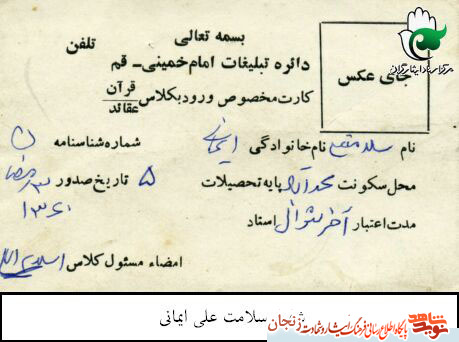 بسمه تعالی
تلفن
دائره تبلیغات امام خمینی - قم
کارت مخصوص ورود بکلاس قرآن عقائد
جای عکس
مرکز اسناد ایثارگران
نام نام خانوادگی ایمانی شماره شناسنامه ۵
محل سکونت پایه تحصیلات ۵ تاریخ صدور
۱۳۶۰
مدت اعتبار آخر شوال استاد
امضاء مسئول کلاس
سلامت علی ایمانی
نوید شاهد پایگاه اطلاع رسانی فرهنگ ایثار و شهادت زنجان